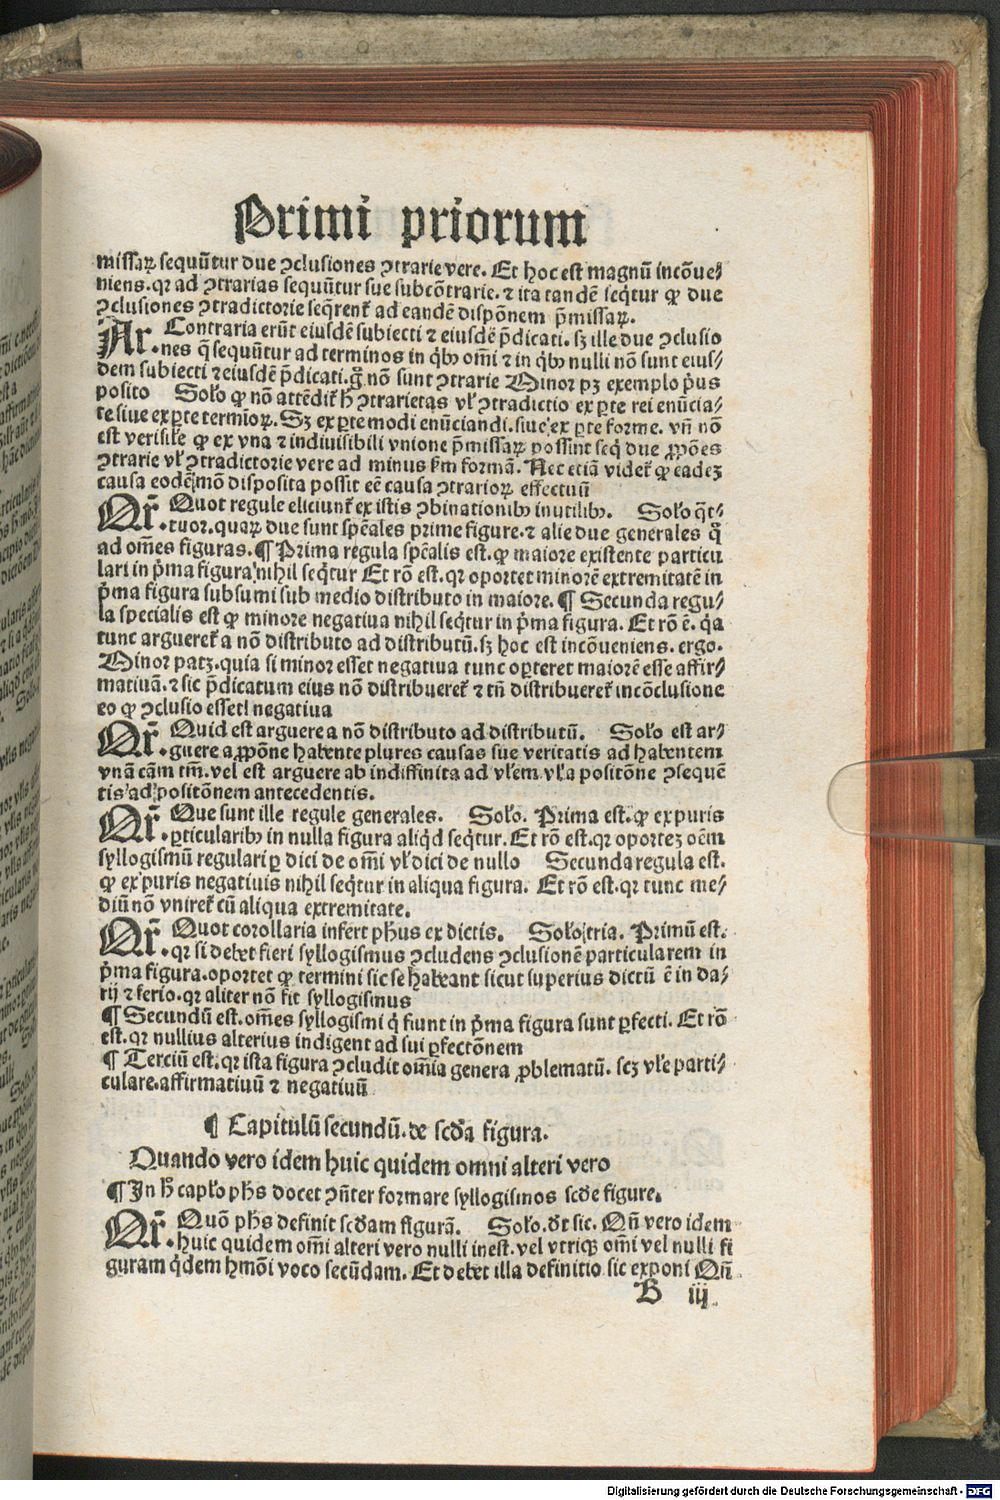 Primi priorum
missaꝝ sequũtur due ꝯclusiones ꝯtrarie vere. Et hoc est magnũ incõue⸗
niens. qꝛ ad ꝯtrarias sequũtur sue subcõtrarie. ⁊ ita tandẽ seq̃tur ꝙ due
ꝯclusiones ꝯtradictorie seq̃rent᷑ ad eandẽ dispõnem p̃missaꝝ.
Ar. Contraria erũt eiusdẽ subiecti ⁊ eiusdẽ p̃dicati. sꝫ ille due ꝯclusio
nes q̃ sequũtur ad terminos in qͥbꝰ om̃i ⁊ in qͥbꝰ nulli nõ sunt eius⸗
dem subiecti ⁊ eiusdẽ p̃dicati. g̊ nõ sunt ꝯtrarie Minor pꝫ exemplo pͥus
posito Solo ꝙ nõ attẽdit᷑ h̃ ꝯtrarietas vl̓ ꝯtradictio ex ꝑte rei enũcia⸗
te siue ex ꝑte termioꝝ. Sꝫ ex ꝑte modi enũciandi. siue ex ꝑte forme. vñ nõ
est verisil̓e ꝙ ex vna ⁊ indiuisibili vnione p̃missaꝝ possint seqͥ due ꝓpões
ꝯtrarie vl̓ ꝯtradictorie vere ad minus km̃ formã. Nec etiã videt᷑ ꝙ eadeꝫ
causa eodẽ mõ disposita possit eẽ causa ꝯtrarioꝝ effectuũ
Qr̃. Quot regule eliciunt᷑ ex istis ꝯbinationibꝰ inutilibꝰ. Solo q̃t⸗
tuor. quaꝝ due sunt spẽales prime figure. ⁊ alie due generales q̊
ad om̃es figuras. ¶ Prima regula spẽalis est. ꝙ maiore existente particu
lari in pͥma figura nihil seqͥtur Et rõ est. qꝛ oportet minorẽ extremitatẽ in
pͥma figura subsumi sub medio distributo in maiore. ¶ Secunda regu⸗
la specialis est ꝙ minore negatiua nihil seqͥtur in pͥma figura. Et rõ ẽ. qꝛa
tunc argueret᷑ a nõ distributo ad distributũ. sꝫ hoc est incõueniens. ergo.
Minor patꝫ. quia si minor esset negatiua tunc oꝑteret maiorẽ esse affir⸗
matiuã. ⁊ sic p̃dicatum eius nõ distribueret᷑ ⁊ tñ distribueret᷑ incõclusione
eo ꝙ ꝯclusio esset negatiua
Qr̃. Quid est arguere a nõ distributo ad distributũ. Solo est ar⸗
guere a ꝓpõne habente plures causas sue veritatis ad habentem
vnã cãm tm̃. vel est arguere ab indiffinita ad vl̓em vl̓ a positõne ꝯsequẽ
tis ad positõnem antecedentis.
Qr̃. Que sunt ille regule generales. Solo. Prima est. ꝙ ex puris
ꝑticularibꝰ in nulla figura aliqͥd seqͥtur. Et rõ est. qꝛ oporteꝫ oẽm
syllogismũ regulari ꝑ dici de om̃i vl̓ dici de nullo Secunda regula est.
ꝙ ex puris negatiuis nihil seqͥtur in aliqua figura. Et rõ est. qꝛ tunc me⸗
diũ nõ vniret᷑ cũ aliqua extremitate.
Qr̃. Quot corollaria infert ph̃us ex dictis. Solo tria. Primũ est.
qꝛ si debet fieri syllogismus ꝯcludens ꝯclusionẽ particularem in
pͥma figura. oportet ꝙ termini sic se habeant sicut superius dictũ ẽ in da⸗
rij ⁊ ferio. qꝛ aliter nõ fit syllogismus
¶ Secundũ est. om̃es syllogismi qͥ fiunt in pͥma figura sunt ꝑfecti. Et rõ
est. qꝛ nullius alterius indigent ad sui ꝑfectõnem
¶ Terciũ est. qꝛ ista figura ꝯcludit om̃ia genera ꝓblematũ. scꝫ vl̓e parti⸗
culare. affirmatiuũ ⁊ negatiuũ
¶ Capitulũ secundũ. de scd̓a figura.
Quando vero idem huic quidem omni alteri vero
¶ In h̃ capl̓o ph̃s docet ꝯñter formare syllogismos scd̓e figure.
Qr̃. Quõ ph̃s definit scd̓am figurã. Solo. d̓t sic. Qñ vero idem
huic quidem om̃i alteri vero nulli inest. vel vtriqꝫ om̃i vel nulli fi
guram qͥdem hm̃õi voco secũdam. Et debet illa definitio sic exponi Qñ
B iij
Digitalisierung gefördert durch die Deutsche Forschungsgemeinschaft - DFG